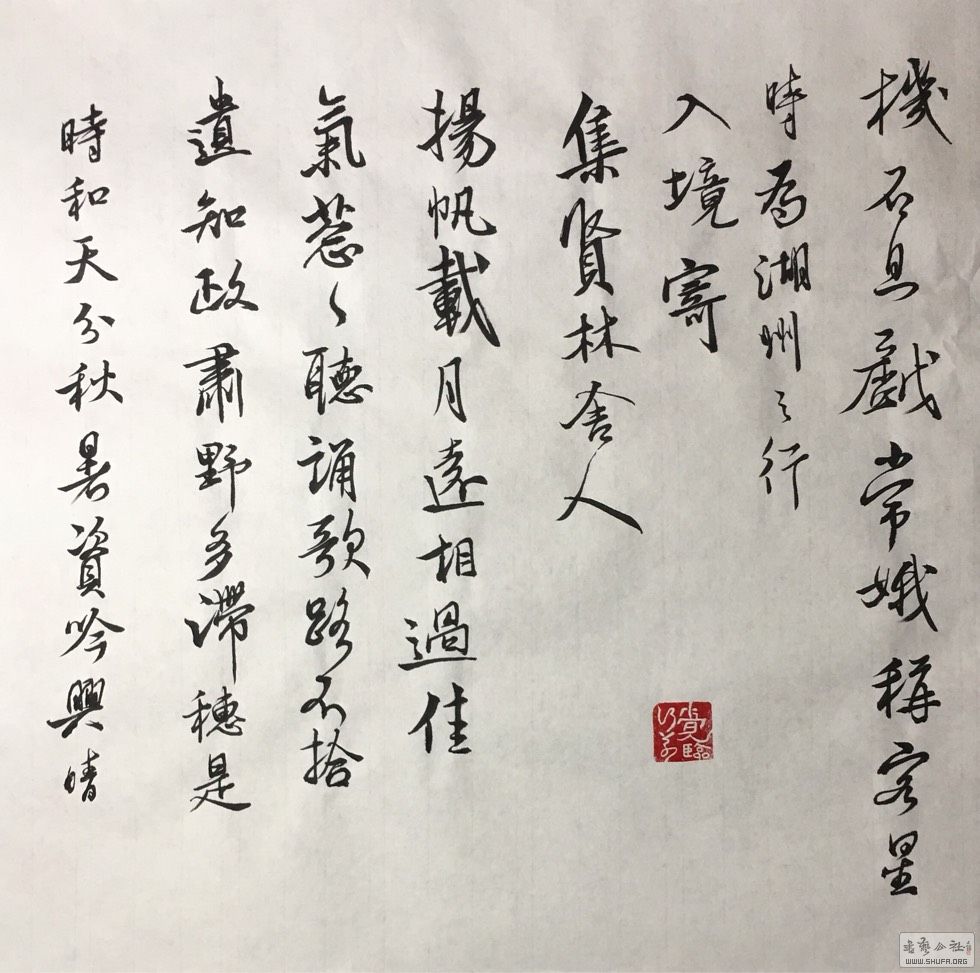 機石且戲常娥稱客星
時為湖州之行
入境寄
集賢林舍人
揚帆載月遠相過佳
氣蔥々聽誦歌路不拾
遺知政肅野多滯穗是
時和天分秋暑資吟興晴
WWW.SHUFA.ORG